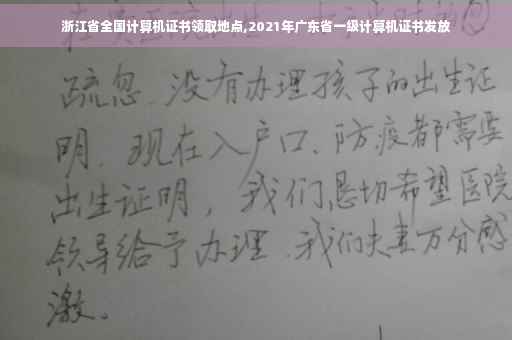 浙江省全国计算机证书领取地点,2021年广东省一级计算机证书发放
疏忽、没有办理孩子的出生证
明、现在入户口、防疫都需要
出生证明，我们恳切希望医院
领导给予办理、我们夫妻万分感
激。